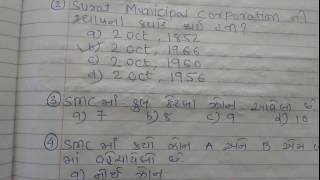 (2) Surat Municipal Corporation ની
સ્થાપના ક્યારે થઈ હતી?
a) 2 oct, 1852
b) 2 oct, 1966
c) 2 oct, 1960
d) 2 oct, 1956
(3) SMC માં કુલ કેટલા ઝોન આવેલા છે.
a) 7 b) 8 c) 9 d) 10
(4) SMC માં કયો ઝોન A અને B એમ
માં છે.
a) નોર્થ ઝોન